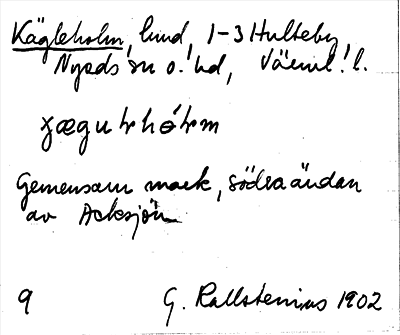 Kägleholm, lund, 1-3 Hulteby,
Nyeds sn o. hd, Värml. l.
Gemensam mark, södra ändan
av Acksjön
9 G. Kallstenius 1902